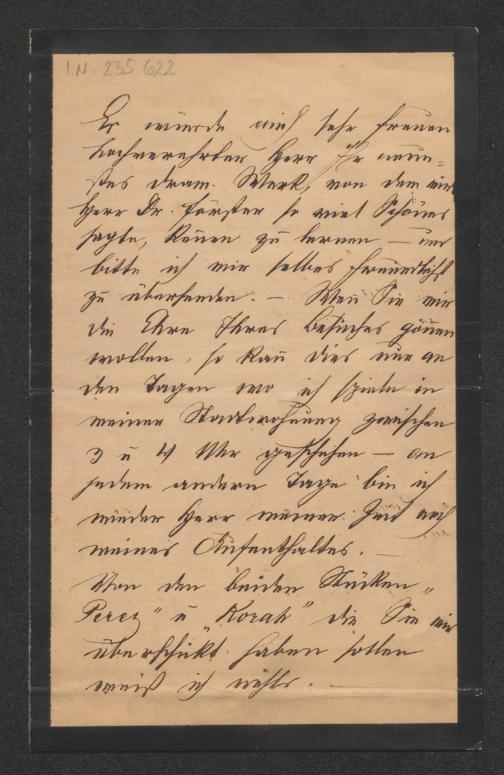 I.N. 235.622
Es würde mich sehr freuen
hochverehrter Herr Ihr neu=
stes dram. Werk, von dem mir
Herr Dr. Förster so viel Schönes
sagte, kennen zu lernen — und
bitte ich mir selbes freundlichst
zu übersenden. — Wen̄ Sie mir
die Ehre Ihres Besuches gönen
wollen, so kan̄ dies nur an
den Tagen wo ich spiele in
meiner Stadtwohnung zwischen
3 u 4 Uhr geschehen — an
jedem andern Tage bin ich
weder Herr meiner Zeit noch
meines Aufenthaltes. —
Von den beiden Stücken „
Perez" u „Korah" die Sie mir
überschickt haben sollen
weiß ich nichts. —